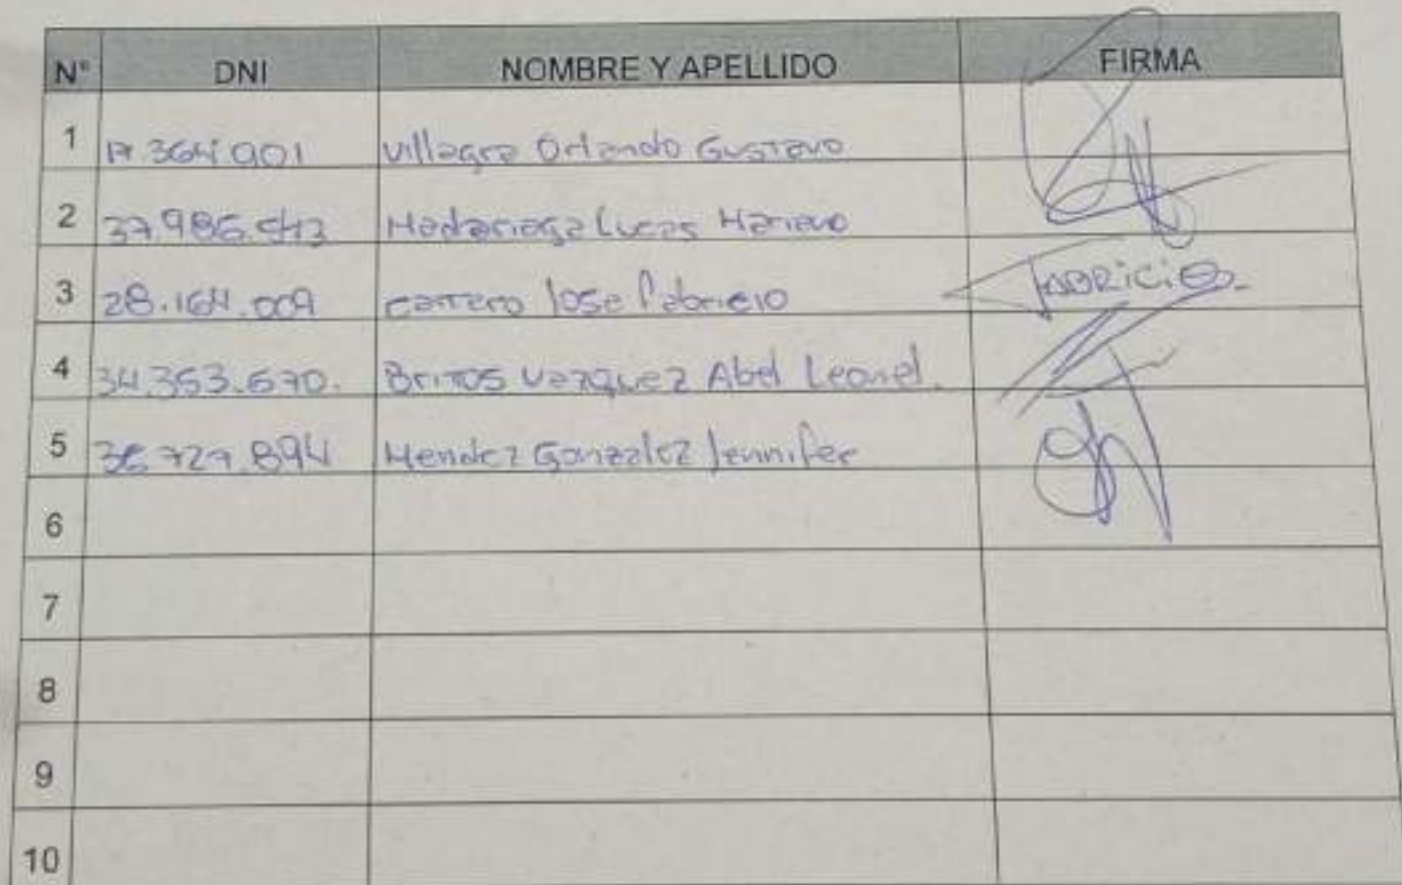 N° DNI NOMBRE Y APELLIDO FIRMA
1 17.364.901 Villagra Orlando Gustavo
2 37.986.543 Madariaga Lucas Mariano
3 28.164.009 Carrero Jose Fabricio FABRICIO
4 34.353.670. Britos Vazquez Abel Leonel.
5 36.727.894 Mendez Gonzalez Jennifer
6
7
8
9
10